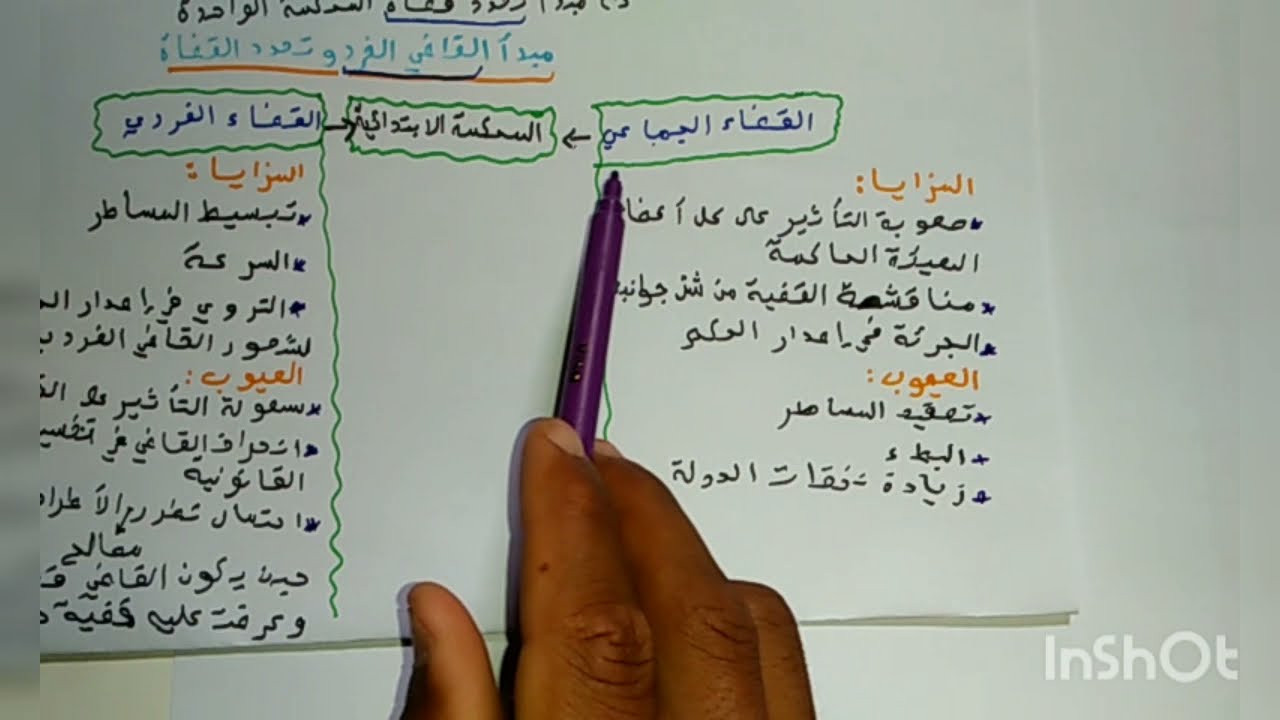 مبدأ تعدد قضاة المحكمة الواحدة
مبدأ القاضي الفرد وتعدد القضاة
القضاء الجماعي ← المحكمة الابتدائية → القضاء الفردي
المزايا:
*صعوبة التأثير على كل أعضاء
الهيئة الحاكمة
*مناقشة القضية من شتى جوانبها
*الجرئة في إصدار الحكم
العيوب:
*تعقيد المساطر
*البطء
*زيادة نفقات الدولة
المزايا:
*تبسيط المساطر
*السرعة
*التروي في إصدار
لشعور القاضي الفرد
العيوب:
*سهولة التأثير على
*انحراف القاضي في
القانونية
*احتمال تضرر الأطراف
مصالح
حين يكون القاضي
وعرضت عليه قضية
InShOt